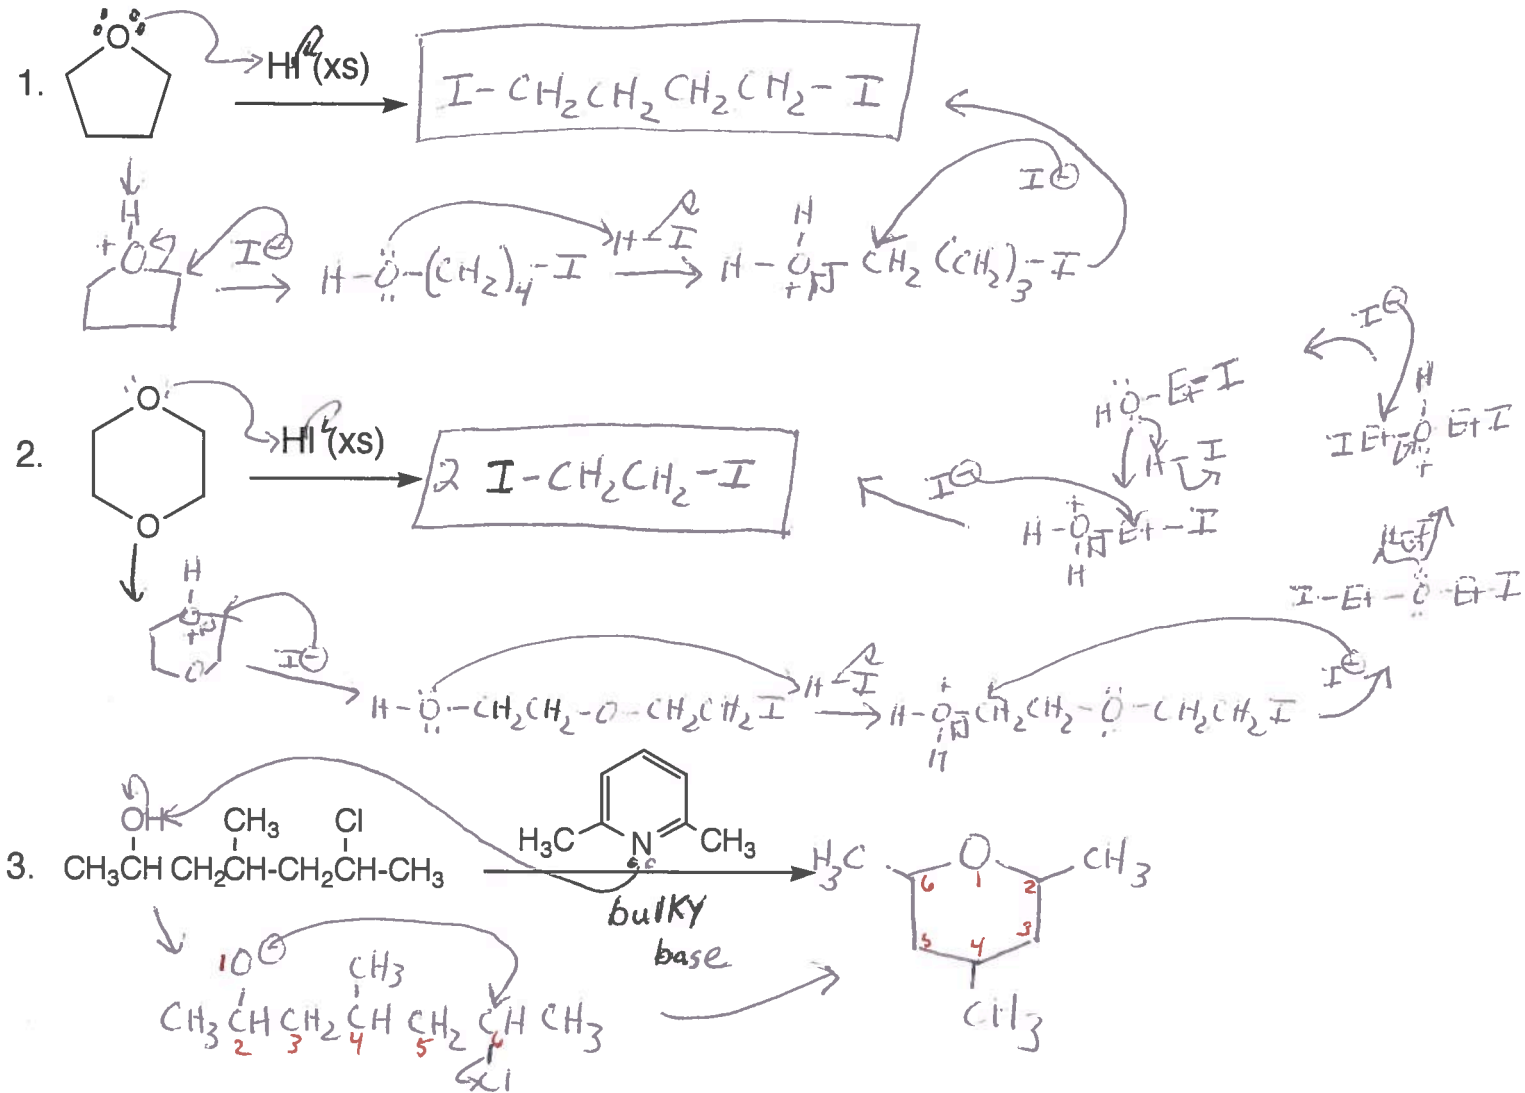 1. O HI (xs) I-CH₂CH₂CH₂CH₂-I
H
+ O I⊖ H-O-(CH₂)₄-I H-I H-O-CH₂(CH₂)₃-I I⊖
H
+
2. O HI (xs) 2 I-CH₂CH₂-I
O
HO-Et-I I⊖
H-I
H
I Et O Et I
+
I⊖ H-O-Et-I
+
H
H-I
I-Et-O-Et-I
H
O
+
O I⊖
H-O-CH₂CH₂-O-CH₂CH₂I H-I H-O-CH₂CH₂-O-CH₂CH₂I I⊖
+
H
3. OH CH₃ Cl
CH₃CH CH₂CH-CH₂CH-CH₃
H₃C N CH₃
bulky
base
H₃C O CH₃
6 1 2
5 4 3
CH₃
1 O⊖ CH₃
CH₃ CH CH₂ CH CH₂ CH CH₃
2 3 4 5 6
Cl